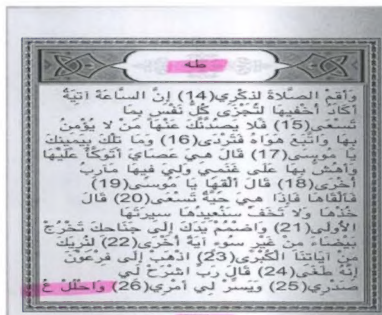 طه
وَأَقِمِ الصَّلَاةَ لِذِكْرِي (14) إِنَّ السَّاعَةَ آتِيَةٌ
أَكَادُ أُخْفِيهَا لِتُجْزَى كُلُّ نَفْسٍ بِمَا
تَسْعَى (15) فَلَا يَصُدَّنَّكَ عَنْهَا مَنْ لَا يُؤْمِنُ
بِهَا وَاتَّبَعَ هَوَاهُ فَتَرْدَى (16) وَمَا تِلْكَ بِيَمِينِكَ
يَا مُوسَى (17) قَالَ هِيَ عَصَايَ أَتَوَكَّأُ عَلَيْهَا
وَأَهُشُّ بِهَا عَلَى غَنَمِي وَلِيَ فِيهَا مَآرِبُ
أُخْرَى (18) قَالَ أَلْقِهَا يَا مُوسَى (19)
فَأَلْقَاهَا فَإِذَا هِيَ حَيَّةٌ تَسْعَى (20) قَالَ
خُذْهَا وَلَا تَخَفْ سَنُعِيدُهَا سِيرَتَهَا
الْأُولَى (21) وَاضْمُمْ يَدَكَ إِلَى جَنَاحِكَ تَخْرُجْ
بَيْضَاءَ مِنْ غَيْرِ سُوءٍ آيَةً أُخْرَى (22) لِنُرِيَكَ
مِنْ آيَاتِنَا الْكُبْرَى (23) اذْهَبْ إِلَى فِرْعَوْنَ
إِنَّهُ طَغَى (24) قَالَ رَبِّ اشْرَحْ لِي
صَدْرِي (25) وَيَسِّرْ لِي أَمْرِي (26) وَاحْلُلْ عُ